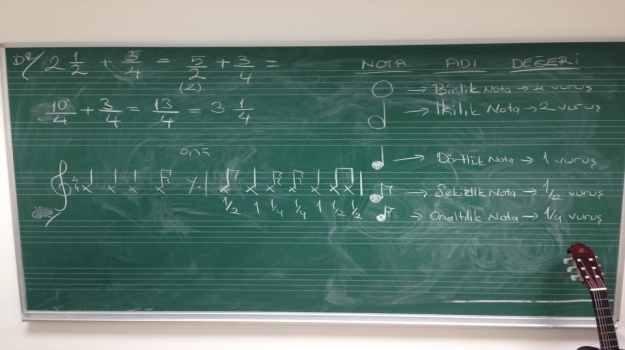 2 1/2 + 3/4 = 5/2 + 3/4 =
(2)
10/4 + 3/4 = 13/4 = 3 1/4
4/4
1/2 1 1/4 1/4 1 1/2 1/2
NOTA ADI DEĞERİ
→ Birlik Nota → 4 vuruş
→ İkilik Nota → 2 vuruş
→ Dörtlük Nota → 1 vuruş
→ Sekizlik Nota → 1/2 vuruş
→ Onaltılık Nota → 1/4 vuruş